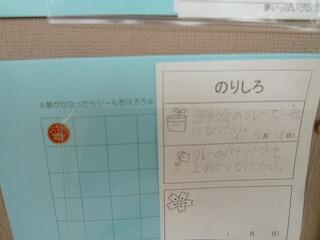 夢いっぱいプログ
☆夢がかなったらシールをはろう☆
のりしろ
のリレーで一位
になりたい。
5月18日)
リレーのバトンパスを
上手につなげたい。
(　月　日)